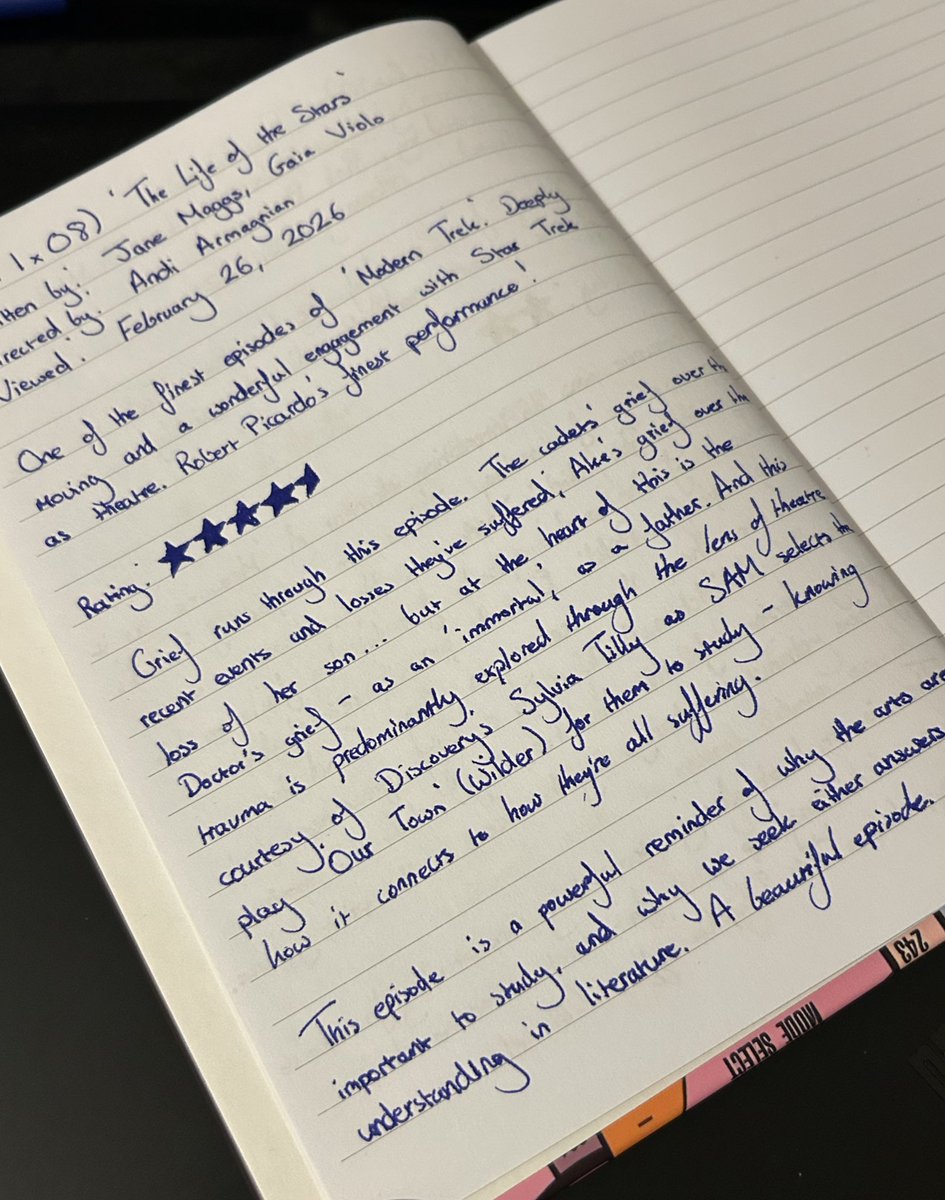 1x08) 'The Life of the Stars'
itten by: Jane Maggs, Gaia Violo
irected by: Andi Armagnian
Viewed: February 26, 2026
One of the finest episodes of 'Modern Trek.' Deeply
moving and a wonderful engagement with Star Trek
as theatre. Robert Picardo's finest performance!
Rating: ★★★★
Grief runs through this episode. The cadets' grief over th
recent events and losses they've suffered, Ake's grief over the
loss of her son... but at the heart of this is the
Doctor's grief - as an 'immortal,' as a father. And this
trauma is predominantly explored through the lens of theatre
courtesy of Discovery's Sylvia Tilly as SAM selects th
play 'Our Town' (Wilder) for them to study - knowing
how it connects to how they're all suffering.
This episode is a powerful reminder of why the arts are
important to study, and why we seek either answers
understanding in literature. A beautiful episode.
243
MODE SELECT